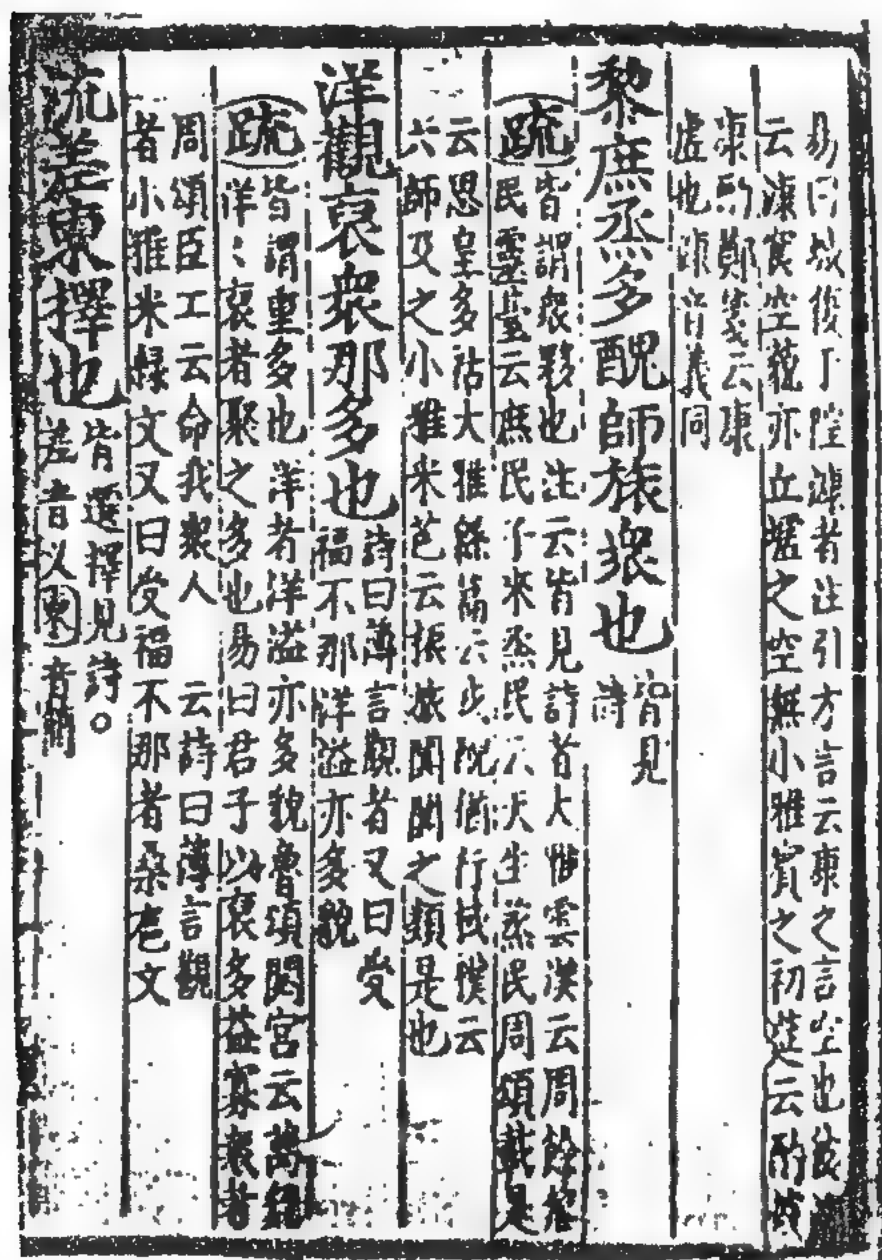 易曰城復于隍漮者注引方言云康之言空也
云漮㝩空貌亦丘墟之空無小雅賓之初筵云酌彼
康爵鄭箋云康
虛也 音義同
黎庶烝多醜師旅衆也
皆見
詩
疏
皆謂衆夥也注云皆見詩者大雅雲漢云周餘黎
民靈臺云庶民子來烝民云天生烝民周頌載是
云思皇多祜大雅緜篇云戎醜攸行棫樸云
六師及之小雅采芑云振旅闐闐之類是也
洋觀裒衆那多也
詩曰薄言觀者又曰受
福不那洋溢亦多貌
疏
皆謂重多也洋者洋溢亦多貌魯頌閟宮云萬舞
洋〻裒者聚之多也易曰君子以裒多益寡衆者
周頌臣工云命我衆人 云詩曰薄言觀
者小雅采綠文又曰受福不那者桑扈文
流差柬擇也
皆選擇見詩○
差音以柬音簡